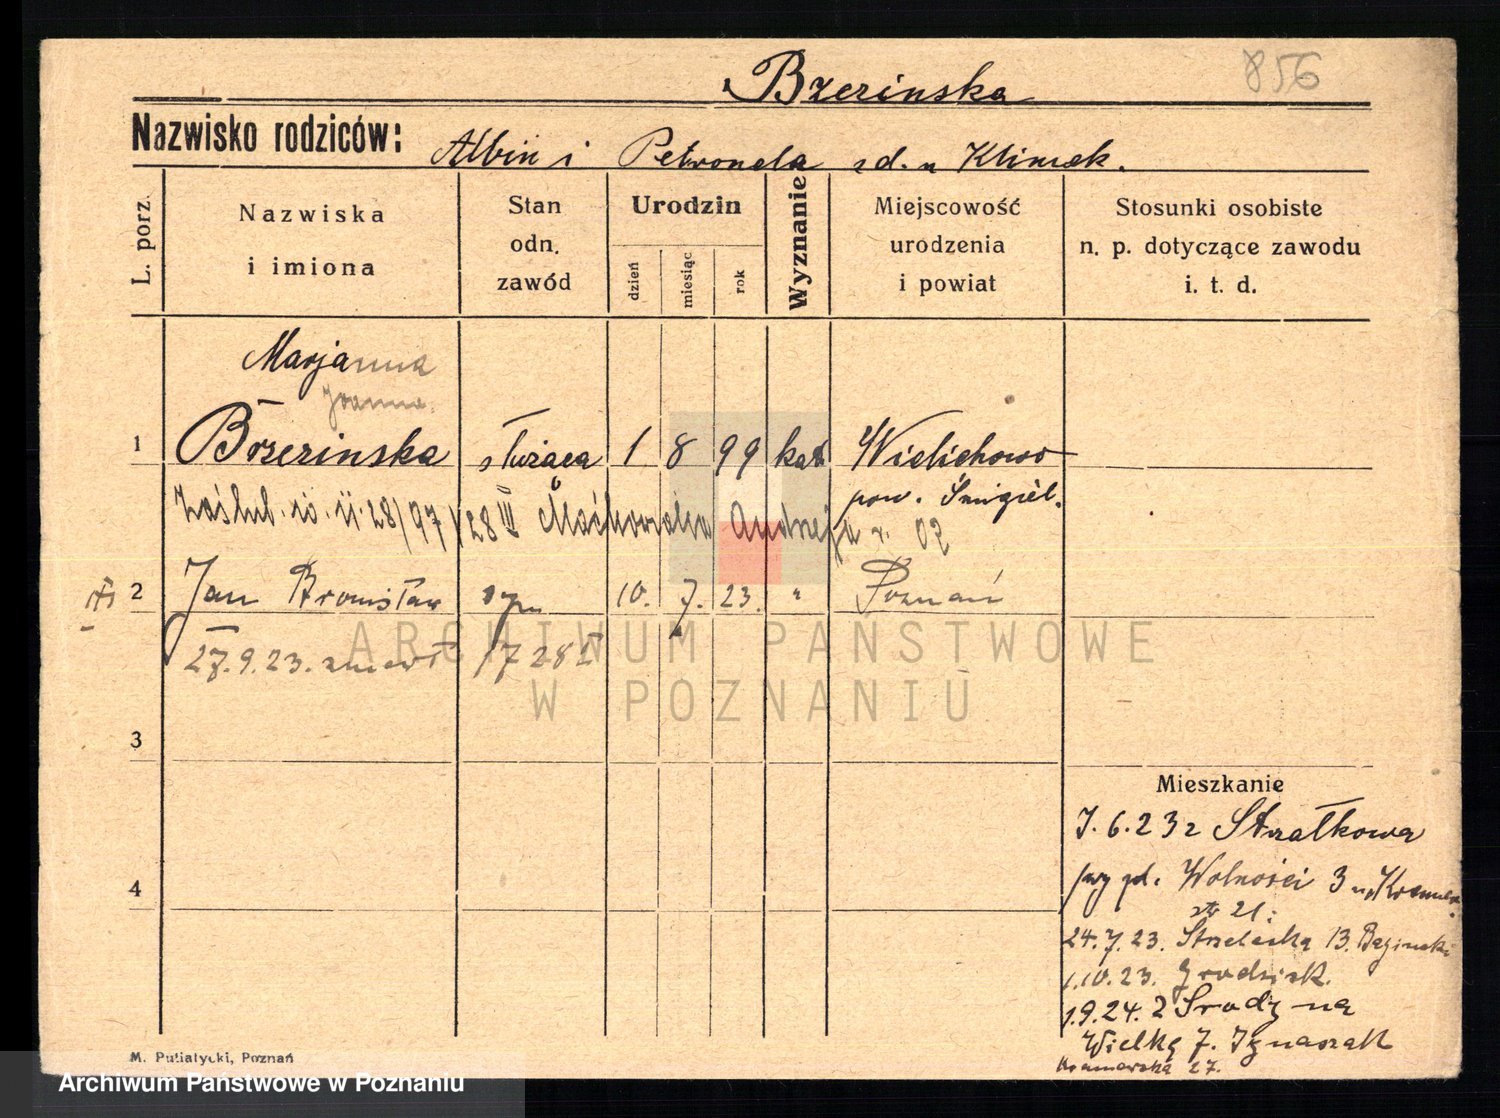 Bzerinska 856
Nazwisko rodziców: Albin i Petronela zd. u Klimek.
L. porz.
Nazwiska
i imiona
Stan
odn.
zawód
Urodzin
dzień
miesiąc
rok
Wyznanie
Miejscowość
urodzenia
i powiat
Stosunki osobiste
n. p. dotyczące zawodu
i. t. d.
Marjanna
Joanna
1 Brzerinska służąca 1 8 99 kat Wielichowo
pow. Śmigiel.
Zaślub. 28/97 /28 III Maćkowiaka Andrzeja r. 02
2 Jan Bronisław syn 10. 7. 23. " Poznań
27.9.23. zmarł
ARCHIWUM PAŃSTWOWE
W POZNANIU
3
4
Mieszkanie
7.6.23 z Strzałkowa
pl. Wolności 3
str 21.
24.7.23. Strzelecka 13.
1.10.23. Grodzisk.
1.9.24. z Środy na
Wielką 7. Ignaszak
Kramarska 27.
M. Putiatycki, Poznań
Archiwum Państwowe w Poznaniu